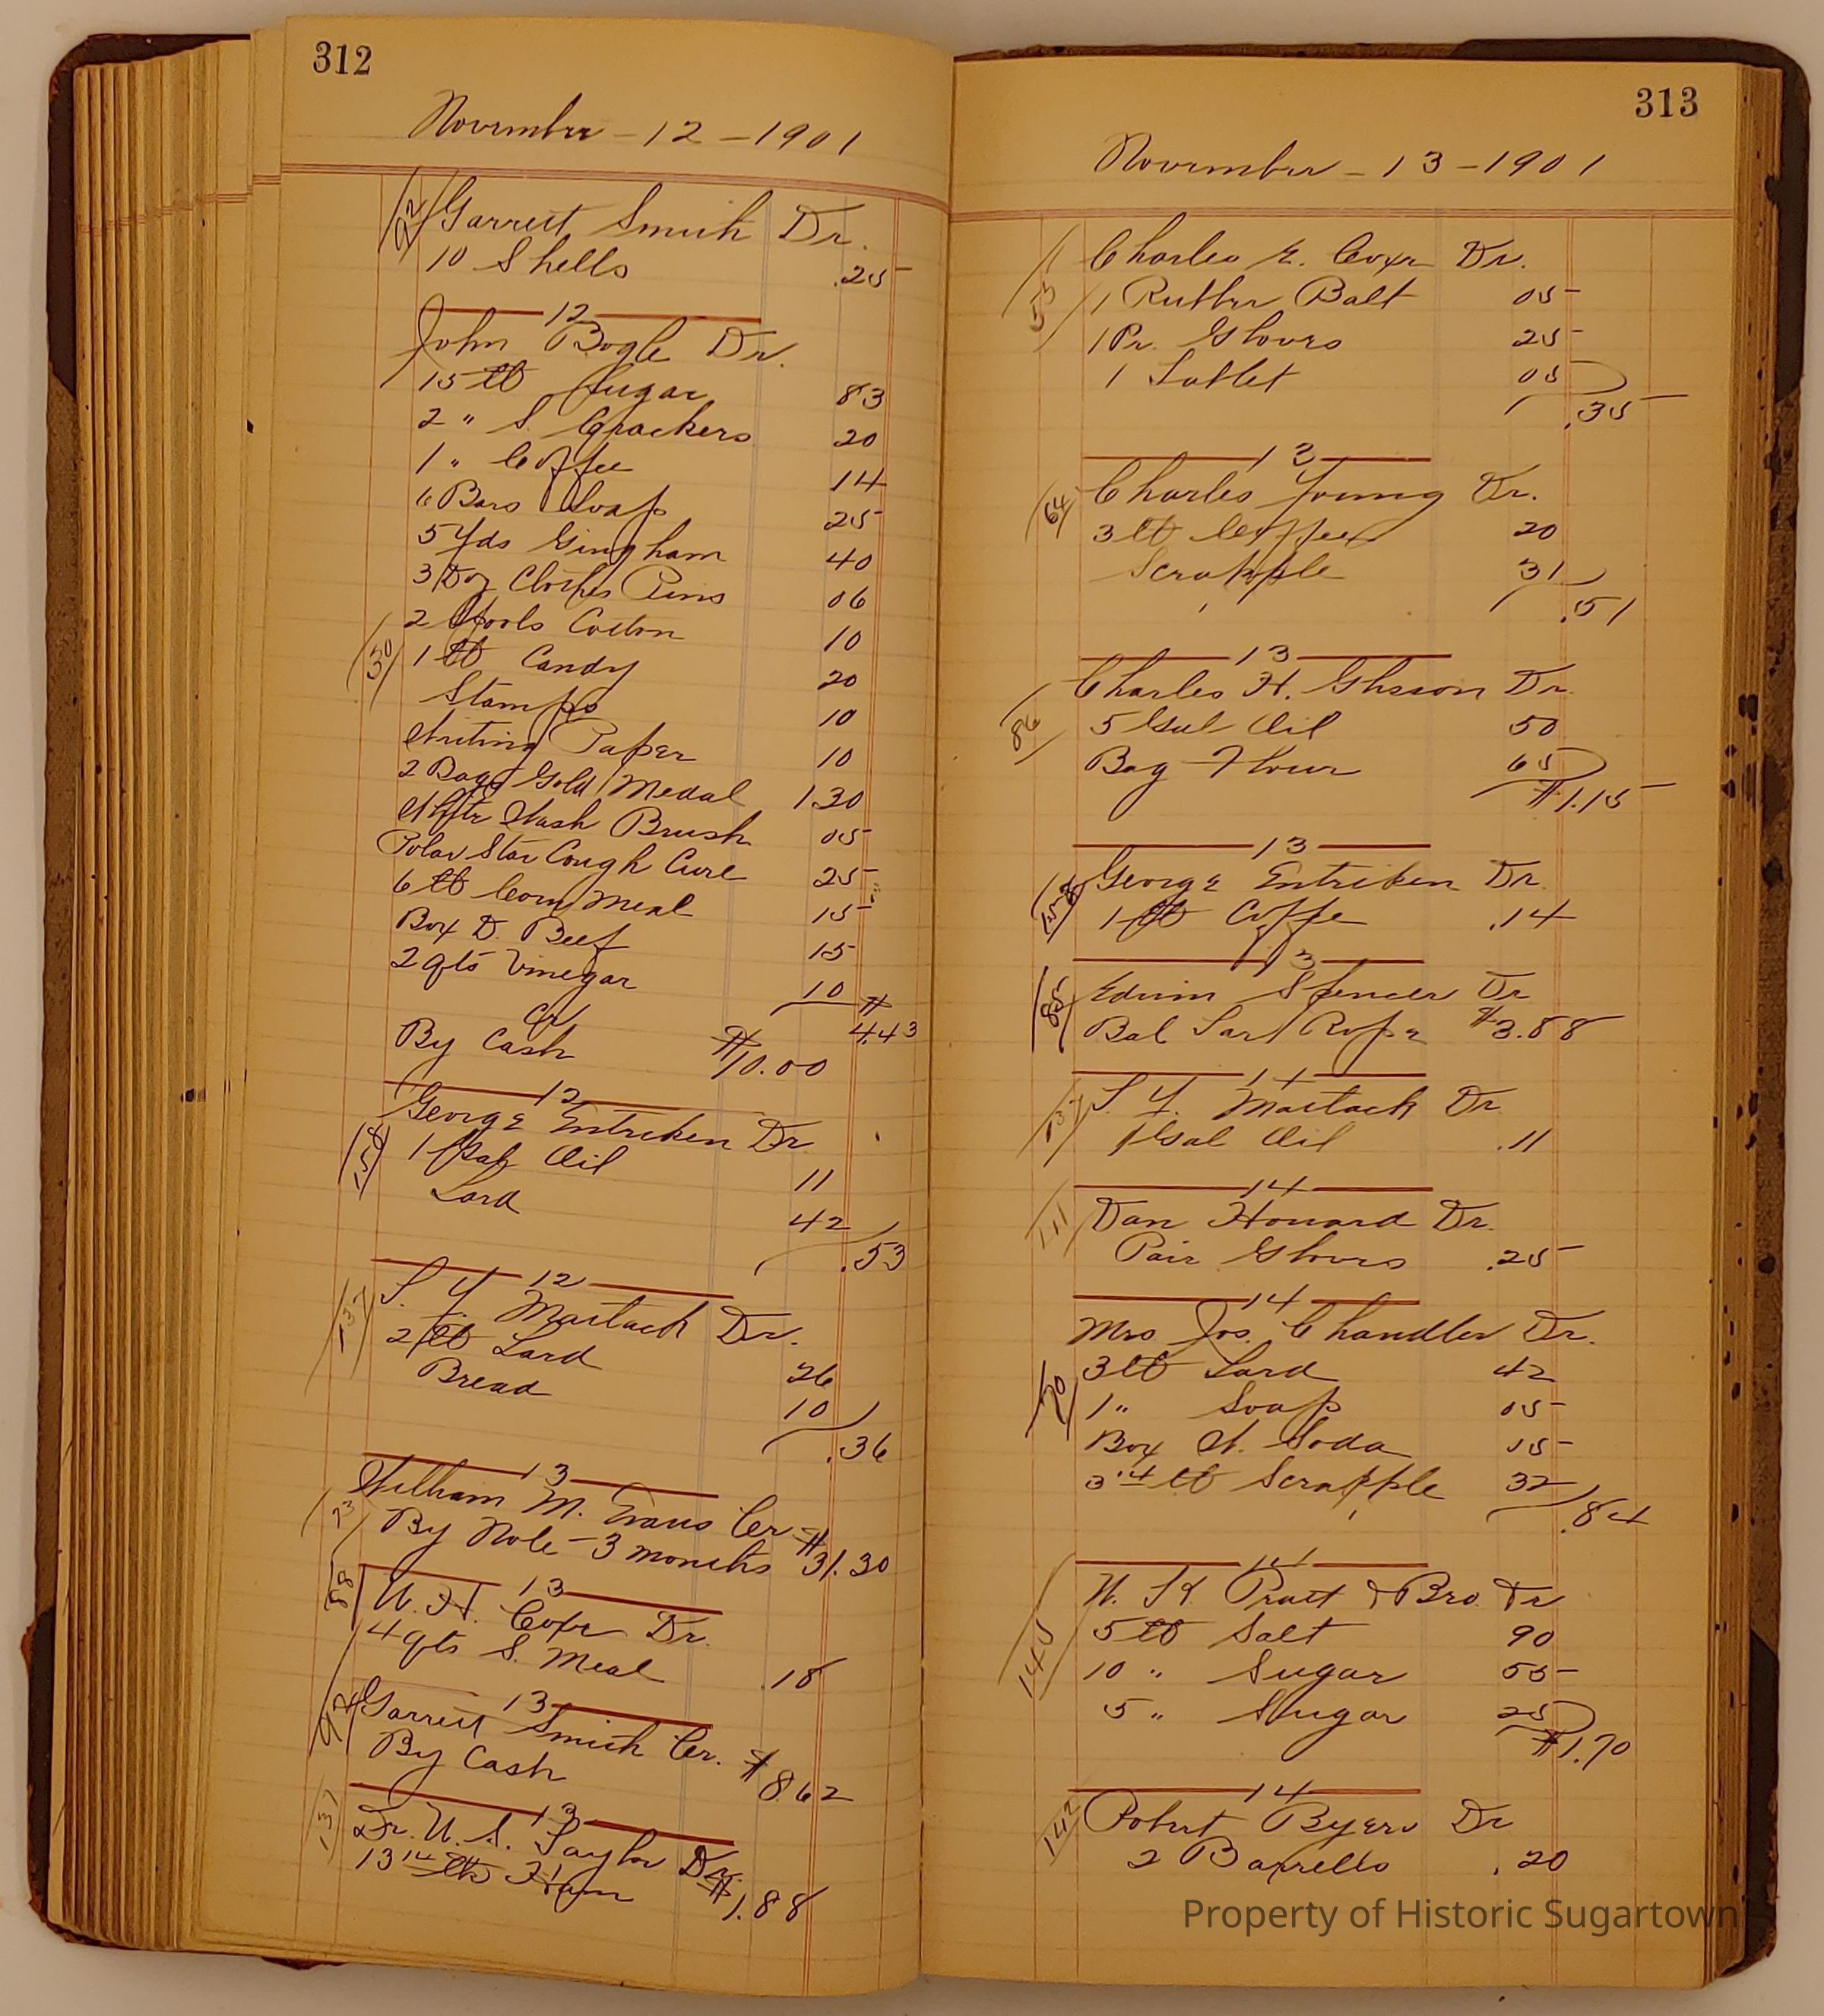 312
November - 12 - 1901
92 Garrett Smith Dr.
10 Shells .25
12
John Bogle Dr.
15 lb Sugar 83
2 " S. Crackers 20
1 " Coffee 14
6 Bars Soap 25
5 Yds Gingham 40
3 Doz Clothes Pins 06
2 Spools Cotton 10
30 1 lb Candy 20
Stamps 10
Writing Paper 10
2 Bags Gold Medal 1.30
White Wash Brush 05
Polar Star Cough Cure 25
6 lb Corn Meal 15
Box D. Beef 15
2 qts Vinegar 10
$4.43
Cr
By Cash $10.00
12
George Entriken Dr.
158 1 Gal Oil 11
Lard 42
.53
12
137 S. Y. Mattack Dr.
2 lb Lard 26
Bread 10
.36
13
William M. Evans Cr.
23 By Note - 3 months $31.30
13
88 W. H. Coxe Dr.
4 qts S. Meal .18
13
92 Garrett Smith Cr.
By Cash $8.62
13
131 Dr. W. S. Taylor Dr.
13 14 lbs Ham $1.88
313
November - 13 - 1901
Charles E. Coxe Dr.
53 1 Rubber Balt 05
1 Pr. Gloves 25
1 Tablet 05
.35
13
64 Charles Young Dr.
3 lb Coffee 20
Scrapple 31
.51
13
Charles H. Dr.
86 5 Gal Oil 50
Bag Flour 65
$1.15
13
158 George Entriken Dr.
1 lb Coffe .14
13
85 Edwin Spencer Dr
Bal Tar Rope $3.88
14
137 S. Y. Mattack Dr
1 Gal Oil .11
14
111 Dan Howard Dr.
Pair Gloves .25
14
Mrs Jos. Chandler Dr.
70 3 lb Lard 42
1 " Soap 05
Box W. Soda 05
3 14 lb Scrapple 32
.84
14
W. H. Pratt & Bro Dr
145 5 lb Salt 90
10 " Sugar 55
5 " Sugar 25
$1.70
14
142 Robert Byers Dr
2 Barrells .20
Property of Historic Sugartown